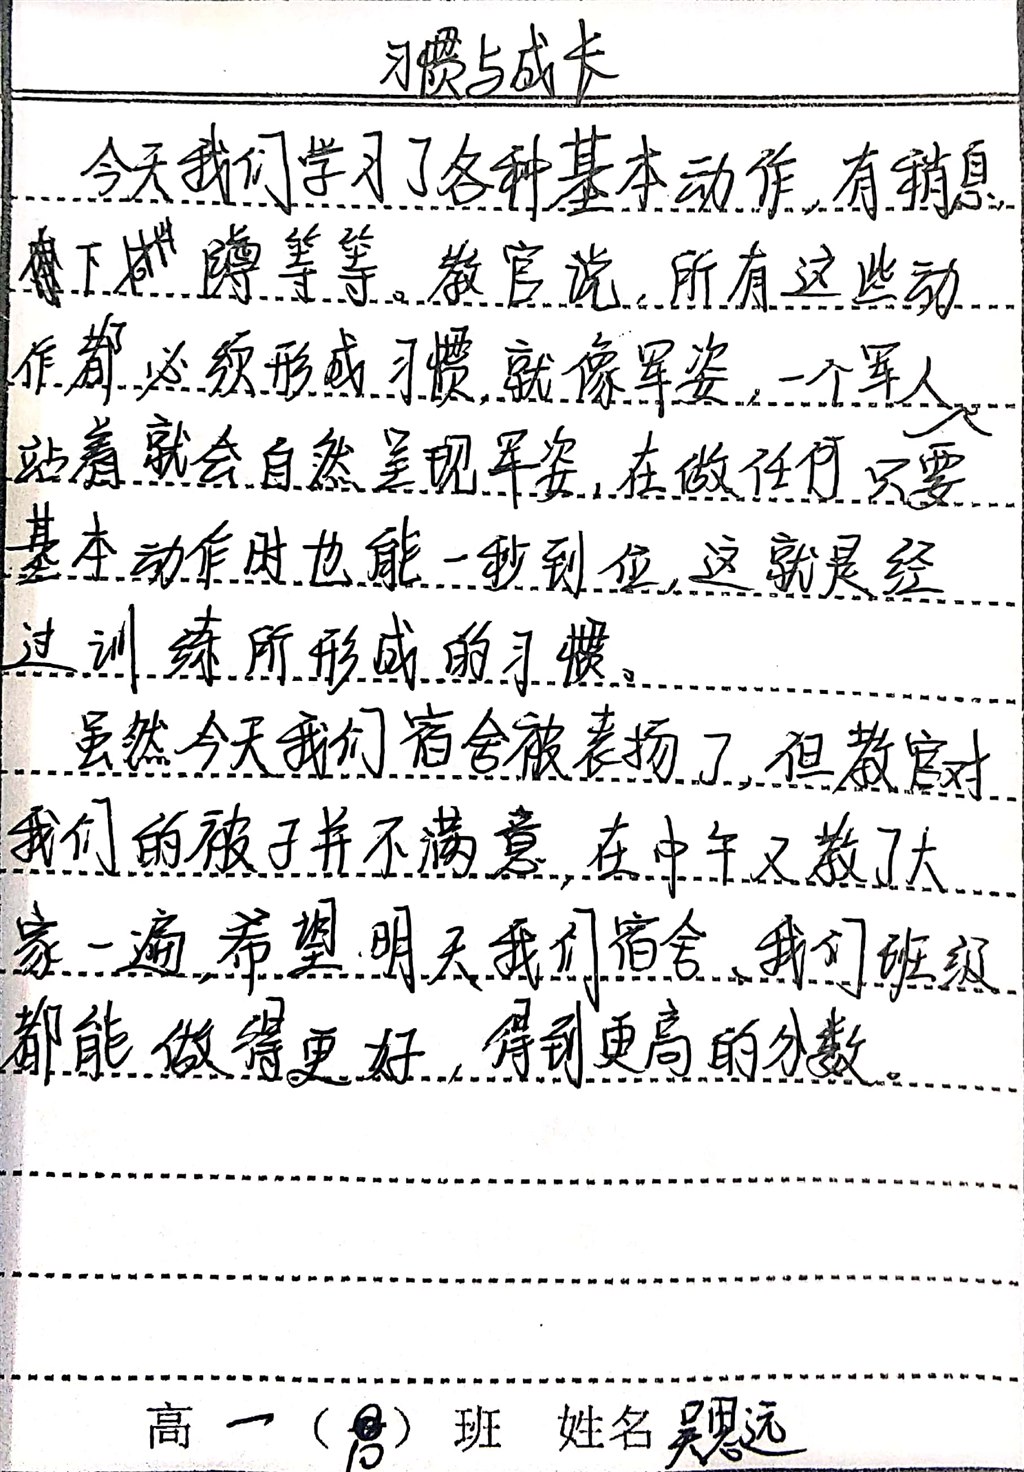 习惯与成长
今天我们学习了各种基本动作,有稍息,
下蹲等等。教官说,所有这些动
作都必须形成习惯,就像军姿,一个军人
只要
站着就会自然呈现军姿,在做任何
基本动作时也能一秒到位,这就是经
过训练所形成的习惯。
虽然今天我们宿舍被表扬了,但教官对
我们的被子并不满意,在中午又教了大
家一遍,希望明天我们宿舍、我们班级
都能做得更好,得到更高的分数。
高一()班 姓名吴思远